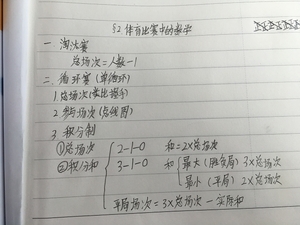 §2.体育比赛中的数学
一.淘汰赛
总场次=人数-1
二.循环赛(单循环)
1.总场次(类比握手)
2.参与场次(点线图)
3.积分制
①总场次
②积分和
2-1-0 和=2×总场次
3-1-0 和
最大(胜负局)3×总场次
最小(平局)2×总场次
平局场次=3×总场次-实际和